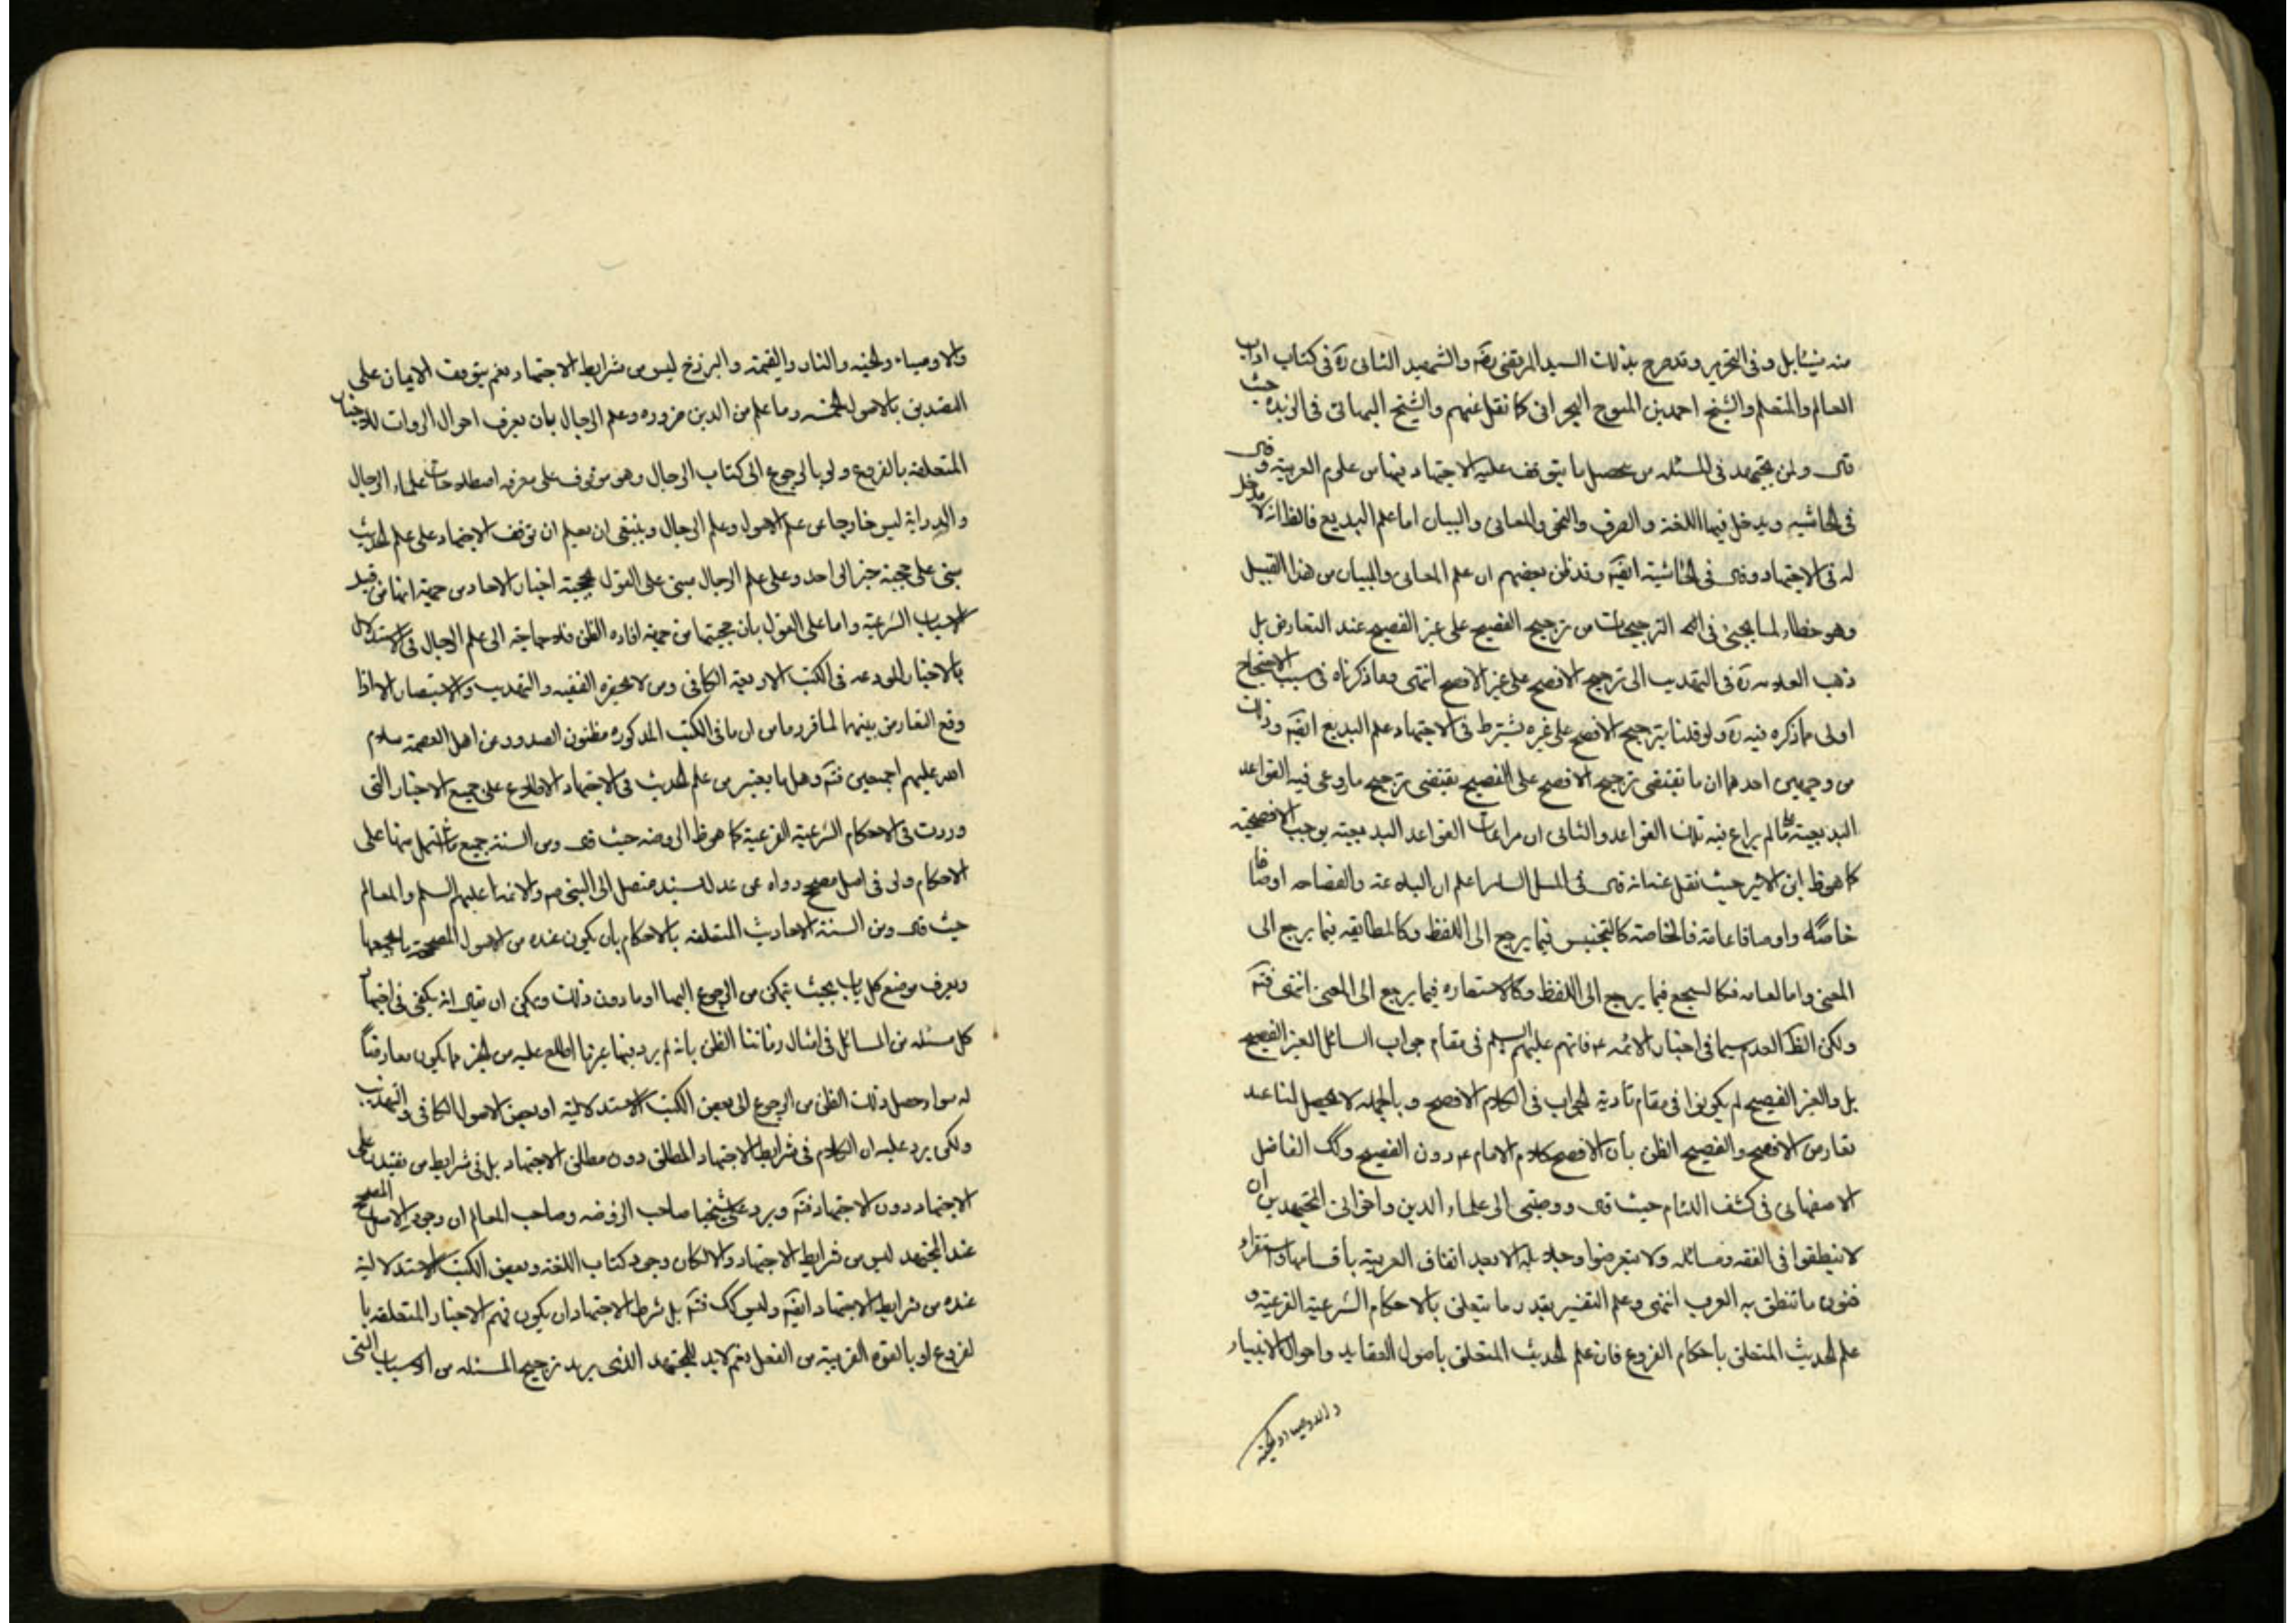 منه فيتأمل وفى التحرير وقد صرح بذلك السيد المرتضى رضه والشهيد الثانى ره فى كتاب اداب
العالم والمتعلم والشيخ احمد بن المتوج البحرانى كما نقل عنهم والشيخ البهائى فى الزبدة حيث
قال ولمن يجتهد فى المسئله من تحصيل ما يتوقف عليه الاجتهاد فيها من علوم العربية وقال
فى الحاشيه ويدخل فيها اللغة والصرف والنحو والمعانى والبيان اما علم البديع فالظ انه لا مدخل
له فى الاجتهاد وقال فى الحاشية ايضه وقد ظن بعضهم ان علم المعانى والبيان من هذا القبيل
وهو خطاء لما يجيئ فى بحث الترجيحات من ترجيح الفصيح على غير الفصيح عند التعارض بل
ذهب العلامه ره فى التهذيب الى ترجيح الافصح على غير الافصح انتهى وما ذكرناه فى سبب الاحتياج
اولى مما ذكره فيه ره ولو قلنا بترجيح الافصح على غيره يشترط فى الاجتهاد علم البديع ايضه وذلك
من وجهين احدهما ان ما تقتضى ترجيح الافصح على الفصيح يقتضى ترجيح ما روعى فيه القواعد
البديعية على ما لم يراع فيه تلك القواعد والثانى ان مراعات القواعد البديعية يوجب الافصحية
كما هو ظ ابن الاثير حيث نقل عنه انه قال فى المثل السائر اعلم ان البلاغة والفصاحه اوصافا
خاصة واوصافا عامة فالخاصة كالتجنيس فيما يرجع الى اللفظ وكالمطابقه فيما يرجع الى
المعنى واما العامه فكالسجع فيما يرجع الى اللفظ وكالاستعاره فيما يرجع الى المعنى انتهى فتم
ولكن الظ العدم سيما فى اخبار الائمه ع فانهم عليهم السلم فى مقام جواب السائل الغير الفصيح
بل والغير الفصيح لم يكونوا فى مقام تأدية الجواب فى الكلام الافصح وبالجمله لا يحصل لنا عند
تعارض الافصح والفصيح الظن بأن الافصح كلام الامام ع دون الفصيح وكك الفاضل
الاصفهانى فى كشف اللثام حيث قال ووصيتى الى علماء الدين واخوانى المجتهدين ان
لا ينطقوا فى الفقه ومسائله ولا يتعرضوا وجلائله الا بعد اتقان العربية بأقسامها واستقراء
فنون ما تنطق به العرب انتهى وعلم التفسير بقدر ما يتعلق بالاحكام الشرعية الفرعية و
علم الحديث المتعلق بأحكام الفروع فان علم الحديث المتعلق بأصول العقايد واحوال الانبياء
والاوصياء والجنة
والاوصياء والجنه والنار والقيمة والبرزخ ليس من شرايط الاجتهاد نعم يتوقف الايمان على
التصديق بالاصول الخمسه وما علم من الدين ضروره وعلم الرجال بأن يعرف احوال الروات للاخبار
المتعلقه بالفروع ولو بالرجوع الى كتاب الرجال وهو موقوف على معرفه اصطلاحات علماء الرجال
والدراية ليس خارجا عن علم الاصول وعلم الرجال وينبغى ان يعلم ان توقف الاجتهاد على علم الحديث
مبنى على حجية خبر الواحد وعلى علم الرجال مبنى على القول بحجية اخبار الاحاد من جهة انها من قبيل
الاسباب الشرعية واما على القول بأن حجيتها من جهة افاده الظن فلا حاجة الى علم الرجال فى الاستدلال
بالاخبار المودعه فى الكتب الاربعة الكافى ومن لا يحضره الفقيه والتهذيب والاستبصار الا اذا
وقع التعارض بينهما لما قرر ما من ان ما فى الكتب المذكوره مظنون الصدور عن اهل العصمة سلام
الله عليهم اجمعين فتم وهل ما يعتبر من علم الحديث فى الاجتهاد الاطلاع على جميع الاخبار التى
وردت فى الاحكام الشرعية الفرعية كما هو ظ الروضه حيث قال ومن السنة جميع ما اشتمل منها على
الاحكام ولو فى اصل مصحح رواه عن عدل بسند متصل الى النبى ص والائمه عليهم السلم والمعالم
حيث قال ومن السنة الاحاديث المتعلقه بالاحكام بان يكون عنده من الاصول المصححة ما يجمعها
ويعرف موضع كل باب بحيث يتمكن من الرجوع اليها او ما دون ذلك ويمكن ان يقال انه يكفى فى اجتهاد
كل مسئله من المسائل فى امثال زماننا الظن بانه لم يرد فيها غير ما اطلع عليه من الخبر مما يكون معارضاً
له سواء حصل ذلك الظن من الرجوع الى بعض الكتب الاستدلالية او بعض الاصول الكافى والتهذيب
ولكن يرد عليه ان الكلام فى شرايط الاجتهاد المطلق دون مطلق الاجتهاد بل فى شرايط من
الاجتهاد دون الاجتهاد فتم ويرد على شيخنا صاحب الروضه وصاحب المعالم ان وجود الاصل المصحح
عند المجتهد ليس من شرايط الاجتهاد والا لكان وجود كتاب اللغة وبعض الكتب الاستدلالية
عنده من شرايط الاجتهاد ايضه وليس كك فتم بل شرط الاجتهاد ان يكون فهم الاخبار المتعلقه با
لفروع او بالقوه القريبة من الفعل نعم لابد للمجتهد الذى يريد ترجيح المسئله من الاسباب التى